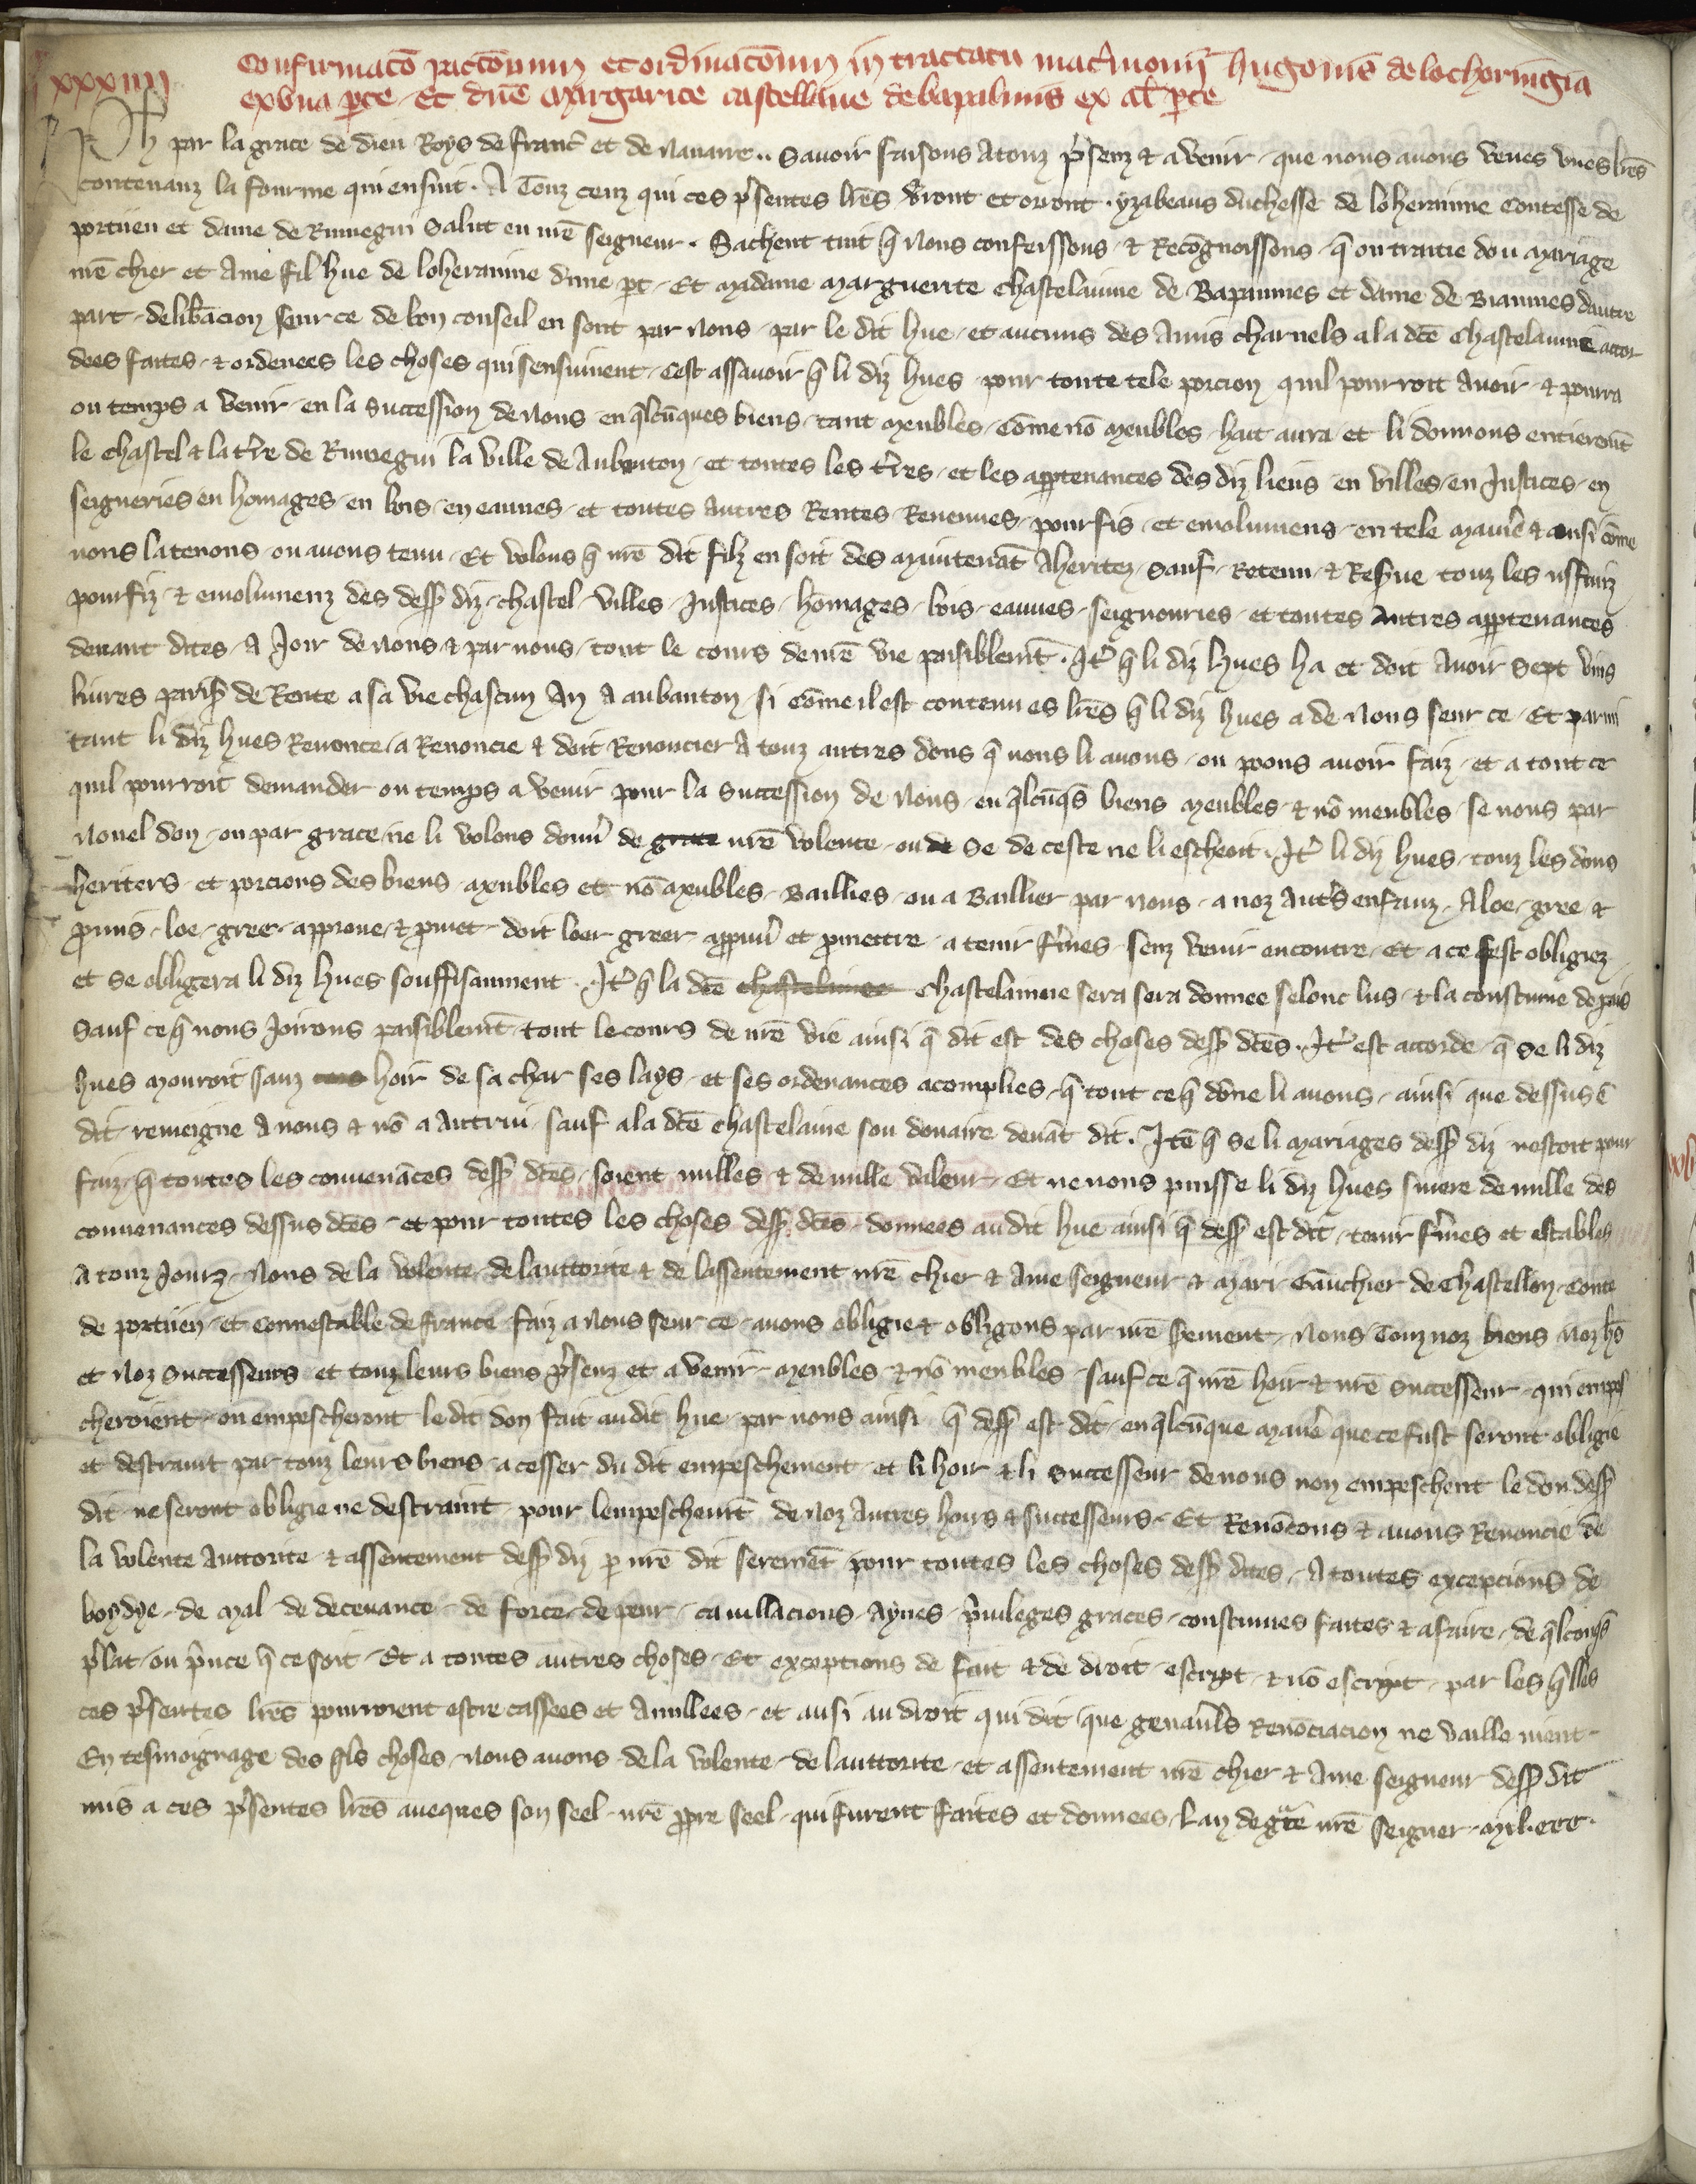 xxxiiii
Confirmac̃o pactc̃onum et ordinac̃onum in tractatu mat̓monij hugonis de lothoringia
ex vna ꝑte et dñe Margarite castellane de bapalmis ex al̓ ꝑte
Ph̓ par la grace de dieu Roys de franc̓ et de Nauarre .. Sauoir faisons a touz p̓senz & a venir que nous auons veues vnes lr̃es
contenanz la fourme qui ensuit. A Touz ceuz qui ces p̓sentes lr̃es v̓ront et orront. yzabeaus duchesse de loherainne Contesse de
portien et dame de Rumegni Salut en nr̃e seigneur. Sachent tuit q̃ Nous confessons & Recõgnoissons q̃ ou traitie dou Mariage
nr̃e chier et Ame fil hue de loherainne dune ꝑt Et Madame Marguerite Chastelainne de Bapaumes et dame de Biaumes dautre
part delib̃acion seur ce de bon conseil en sont par Nous par le dit hue et aucuns des Amis charnels a la dc̃e Chastelainne accor
dees faites & ordenees les choses qui sensuiuent Cest assauoir q̃ li diz hues pour toute tele porcion quil pourroit Auoir & pourra
ou temps a venir en la Succession de Nous en q̃lcũques biens tant Meubles Cõme nõ Meubles hait aura et li donnons entierem̃t
le Chastel & la t̓re de Rumegni la ville de Aubenton et toutes les t̓res et les apꝑtenances des diz lieus en villes en Justices en
seigneries en homages en bois en eaunes et toutes Autres Rentes Reuenues pourfis et emolumens en tele Maniẽ & ausi cõme
nous la tenons ou auons tenu Et volons q̃ nr̃e dit filz en soit des Maintenãt Aheritez Sauf Retenu & Res̓ue touz les usfruiz
pourfiz & emolumenz des dess̓ diz chastel villes Justices hõmages bois eaunes seignouries et toutes Autres apꝑtenances
deuant dites A Joir de Nous & par nous tout le cours de nr̃e vie paisiblem̃t. It̓ q̃ li diz hues ha et doit Auoir Sept vins
liures paris̓ de Rente a sa vie chascun An a aubanton si Cõme il est contenu es lr̃es q̃ li diz hues a de Nous seur ce Et parmi
tant li diz hues Renonce a Renoncie & doit Renoncier A touz autres dons q̃ nous li auons ou poons auoir faiz et a tout ce
quil pourroit demander ou temps a venir pour la Succession de Nous en q̃lcũq̃s biens Meubles & nõ meubles se nous par
Nouel don ou par grace ne li volons doun̓ de grace nr̃e volente ou de se de ceste ne li escheoit. It̓ li diz hues touz les dons
heriters et porcions des biens Meubles et nõ Meubles Baillies ou a Baillier par nous a noz Aut̓s enfanz A loe gree &
ꝓmis loe gree approue & ꝓmet doit loer greer appnũ et ꝓmettre a tenir f̓mes senz venir encontre Et a ce sest obligiez
et se obligera li diz hues souffisanment. It̓ q̃ la dc̃e chastelainne Chastelainne sera sera donnee selonc lus & la coustume de pais
Sauf ce q̃ nous Joirons paisiblem̃t tout le cours de nr̃e vie ainsi q̃ dit est des choses dess̓ dc̃es. It̓ est accorde q̃ se li diz
hues Mouroit sanz hoir de sa char ses lays et ses ordenances acomplies q̃ tout ce q̃ dõne li auons ainsi que dessus ẽ
dit remeigne A nous & nõ a Autrui sauf a la dc̃e Chastelaine son donaire deuãt dit. Itẽ q̃ se li Mariages dess̓ diz nestoit pour
faiz q̃ toutes les conuenãces dess̓ dc̃es soient nulles & de nulle valeur Et ne nous puisse li diz hues suiere de nulle des
conuenances dessus dc̃es et pour toutes les choses dess̓ dc̃es donnees au dit hue ainsi q̃ dess̓ est dit tenir f̓mes et estables
A touz Jourz Nous de la volente de lauttorite & de lassentement nr̃e chier & Ame seigneur & Mari Gauchier de Chastellon Conte
de portien et Connestable de france faiz a Nous seur ce auons obligie & obligons par nr̃e s̓ement Nous Touz noz biens Noz hs̓
et Noz Successeurs et touz leurs biens p̓senz et a venir Meubles & nõ meubles sauf ce q̃ nr̃e hoir & nr̃e Successeur qui empes
cheroient ou empescheront le dit don fait au dit hue par nous ainsi q̃ dess̓ est dit en q̃lcũque Maniẽ que ce fust seront obligie
et destraint par touz leurs biens a cesser du dit empeschement et li hoir & li Successeur de nous non empeschent le don dess̓
dit ne seront obligie ne destraint pour lempeschem̃t de Noz Autres hoirs & successeurs Et Renõcons & auons Renoncie de
la volente Auttorite & assentement dess̓ diz ꝑ nr̃e dit seremẽt pour toutes les choses dess̓ dites A toutes excepcions de
boydye de Mal de deceuance de force de peur cauillacions Aynes p̓uileges graces coustumes faites & a faire de q̃lconq̃
p̓lat ou p̓nce q̃ ce soit Et a toutes autres choses Et exceptions de fait & de droit escript & nõ escript par les q̃lles
ces p̓sentes lr̃es pourroient estre cassees et Anullees et ausi au droit qui dit que gen̓auls Renõciacion ne vaille nient
En tesmoignage des q̃ls choses Nous auons de la volente de lauttorite et assentement nr̃e chier & Ame seigneur dess̓ dit
mis a ces p̓sentes lr̃es aueques son seel nr̃e ꝓpre seel qui furent faites et donnees Lan de gr̃ce nr̃e Seigner Mil. ccc.